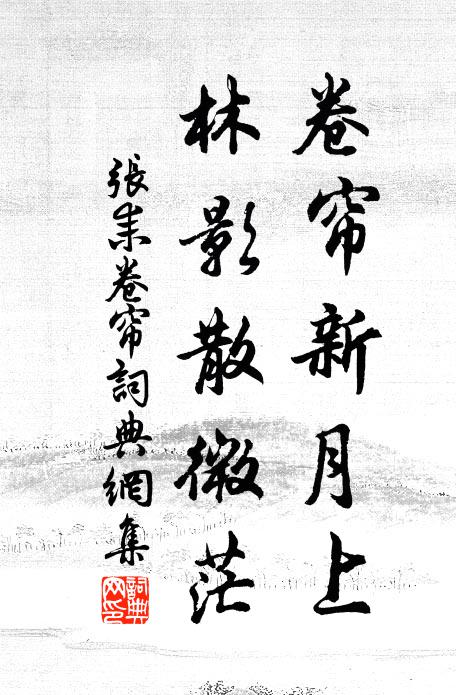 卷帘新月上
林影散微茫
張耒卷帘詞典網集
詞典网印